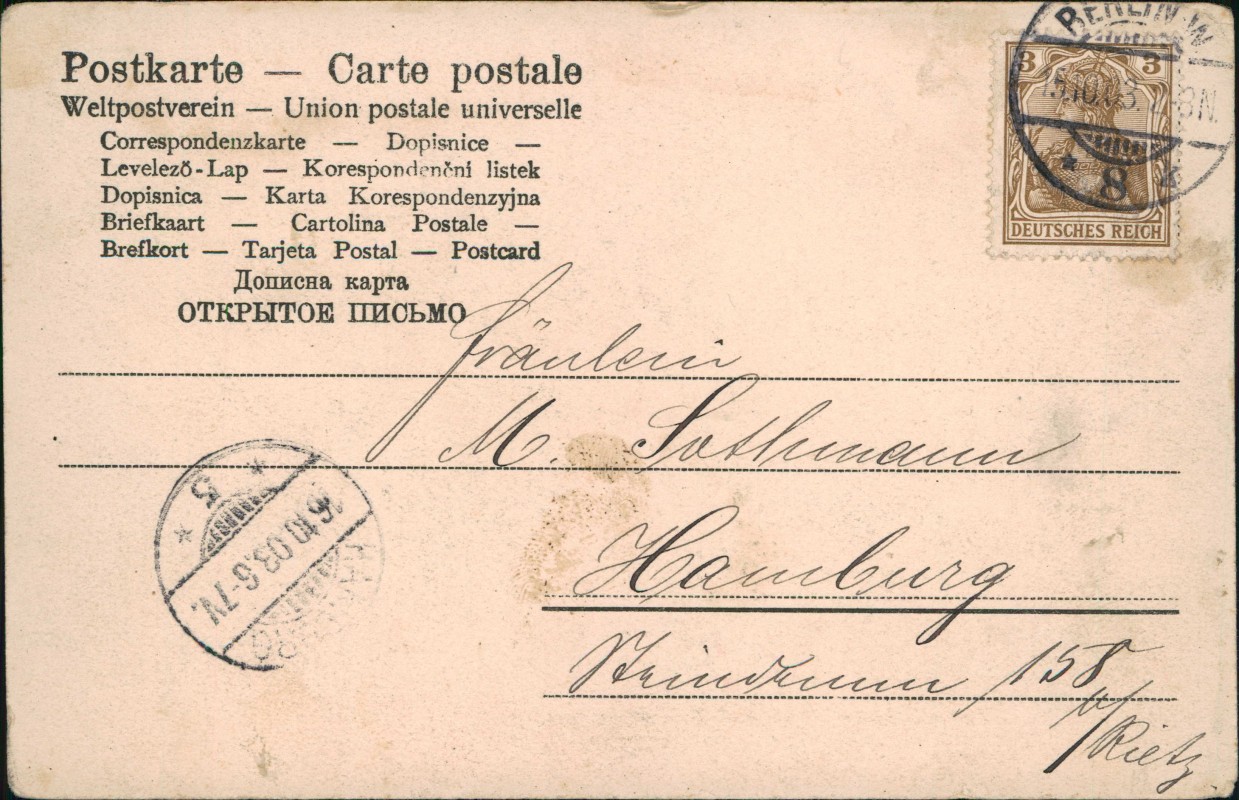 Postkarte — Carte postale
Weltpostverein — Union postale universelle
Correspondenzkarte — Dopisnice —
Levelező-Lap — Korespondenční listek
Dopisnica — Karta Korespondenzyjna
Briefkaart — Cartolina Postale —
Brefkort — Tarjeta Postal — Postcard
Дописна карта
ОТКРЫТОЕ ПИСЬМО
BERLIN W
3 3
15.10.03. 7-8N.
* 8 *
DEUTSCHES REICH
Fräulein
M. Sothmann
Hamburg
Steindamm 158
b/Rietz
HAMBURG
16.10.03.6-7V.
* 5 *